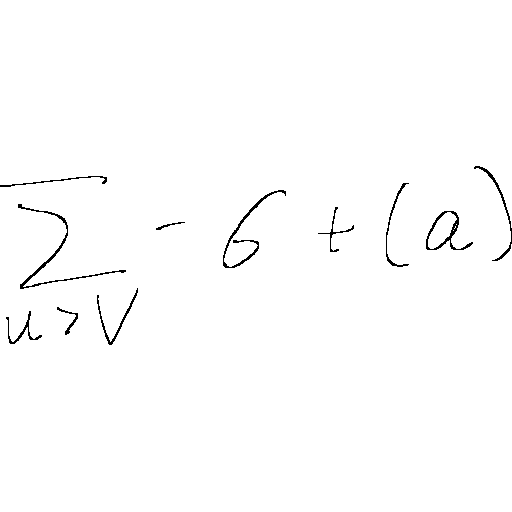 \sum_{u>v} -6+(a)